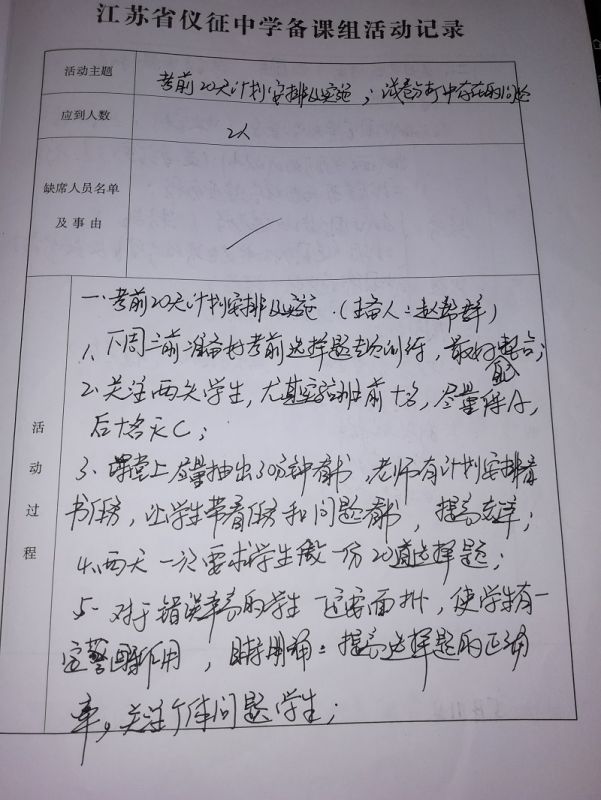 江苏省仪征中学备课组活动记录
活动主题
考前20天计划安排及实施；试卷分析中存在的问题
应到人数
2人
缺席人员名单
及事由
活动过程
一、考前20天计划安排及实施．（主备人：赵帮群）
1、下周三前准备好考前选择题专项训练，最好整合；
2、关注两头学生，尤其实验班前十名，尽量得A，
后十名灭C；
3、课堂上尽量抽出30分钟看书，老师有计划安排看
书任务，让学生带着任务和问题看书，提高效率；
4、两天一次要求学生做一份20道选择题；
5、对于错误率高的学生 还要面批，使学生有一
定警 作用，目标明确：提高选择题的正确
率，关注个体问题学生；